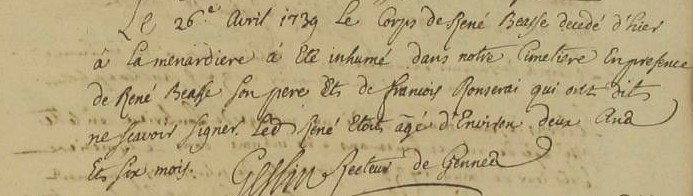 Le 26e Avril 1739 Le Corps de René Beasse decedé d'hier
à La menardiere à Eté inhumé dans notre Cimetiere En presence
de René Beasse Son pere Et de francois Ronserai qui ont dit
ne scavoir Signer. Led René Etoit âgé d'Environ deux Ans
Et Six mois. Geslin Recteur de Gennes